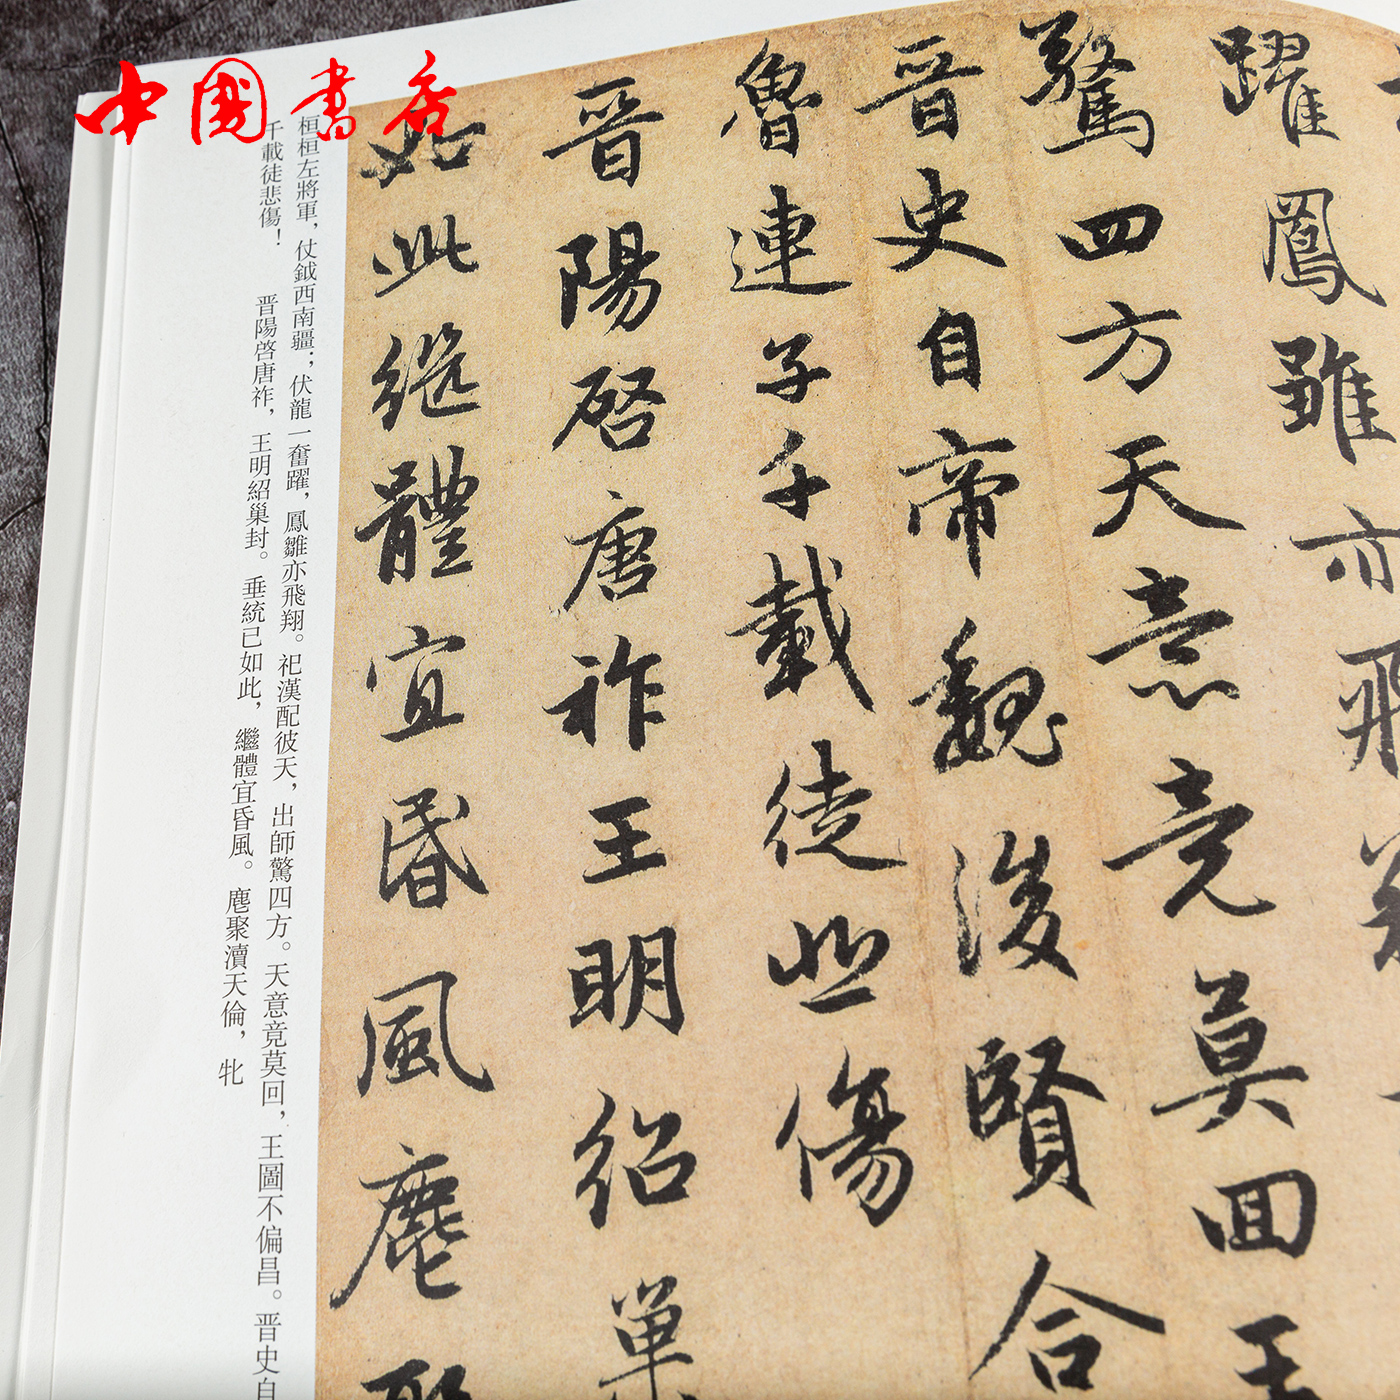 中國書店
躍鳳雛亦飛翔
驚四方天意竟莫回王
晋史自帝魏後賢合
魯連子千載徒悲傷
晋陽啓唐祚王明紹巢
如此繼體宜昏風麀聚
桓桓左將軍，仗鉞西南疆；伏龍一奮躍，鳳雛亦飛翔。祀漢配彼天，出師驚四方。天意竟莫回，王圖不偏昌。晋史自
千載徒悲傷！ 晋陽啓唐祚，王明紹巢封。垂統已如此，繼體宜昏風。麀聚瀆天倫，牝